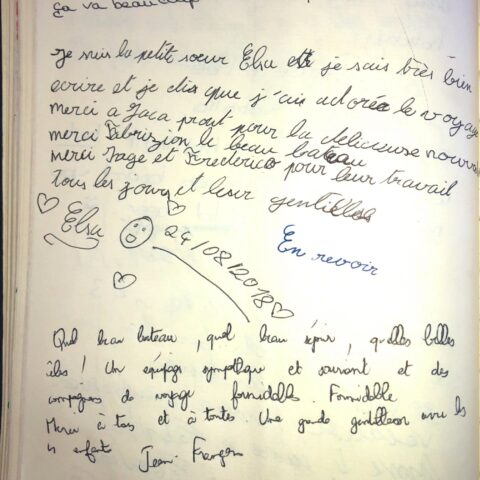 ça va beaucoup
Je suis la petite sœur Elsa et je sais très bien
ecrire et je dis que j'ai adorée le voyage
merci a Jaca prout pour la delicieuse nourri
merci Fabrizion le beau bateau
merci Jage et Frederico pour leur travail
tous les jours et leur gentilles
Elsa 24/08/2018
En revoir
Quel beau bateau, quel beau séjour, quelles belles
îles ! Un équipage sympathique et souriant et des
compagnons de voyage formidables. Formidable
Merci à tous et à toutes. Une grande gentillesse avec les
4 enfants Jean-François